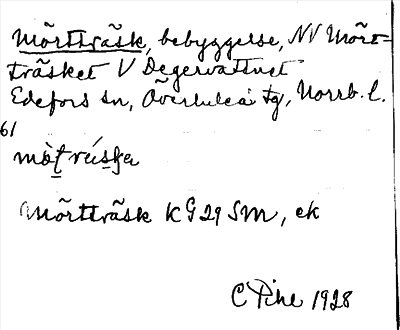 Mörtträsk, bebyggelse, NV Mört-
träsket V Degervattnet
Edefors sn, Överluleå tg, Norrb. l.
61
Mörtträsk KG 29 SM, ek
C Pihl 1928